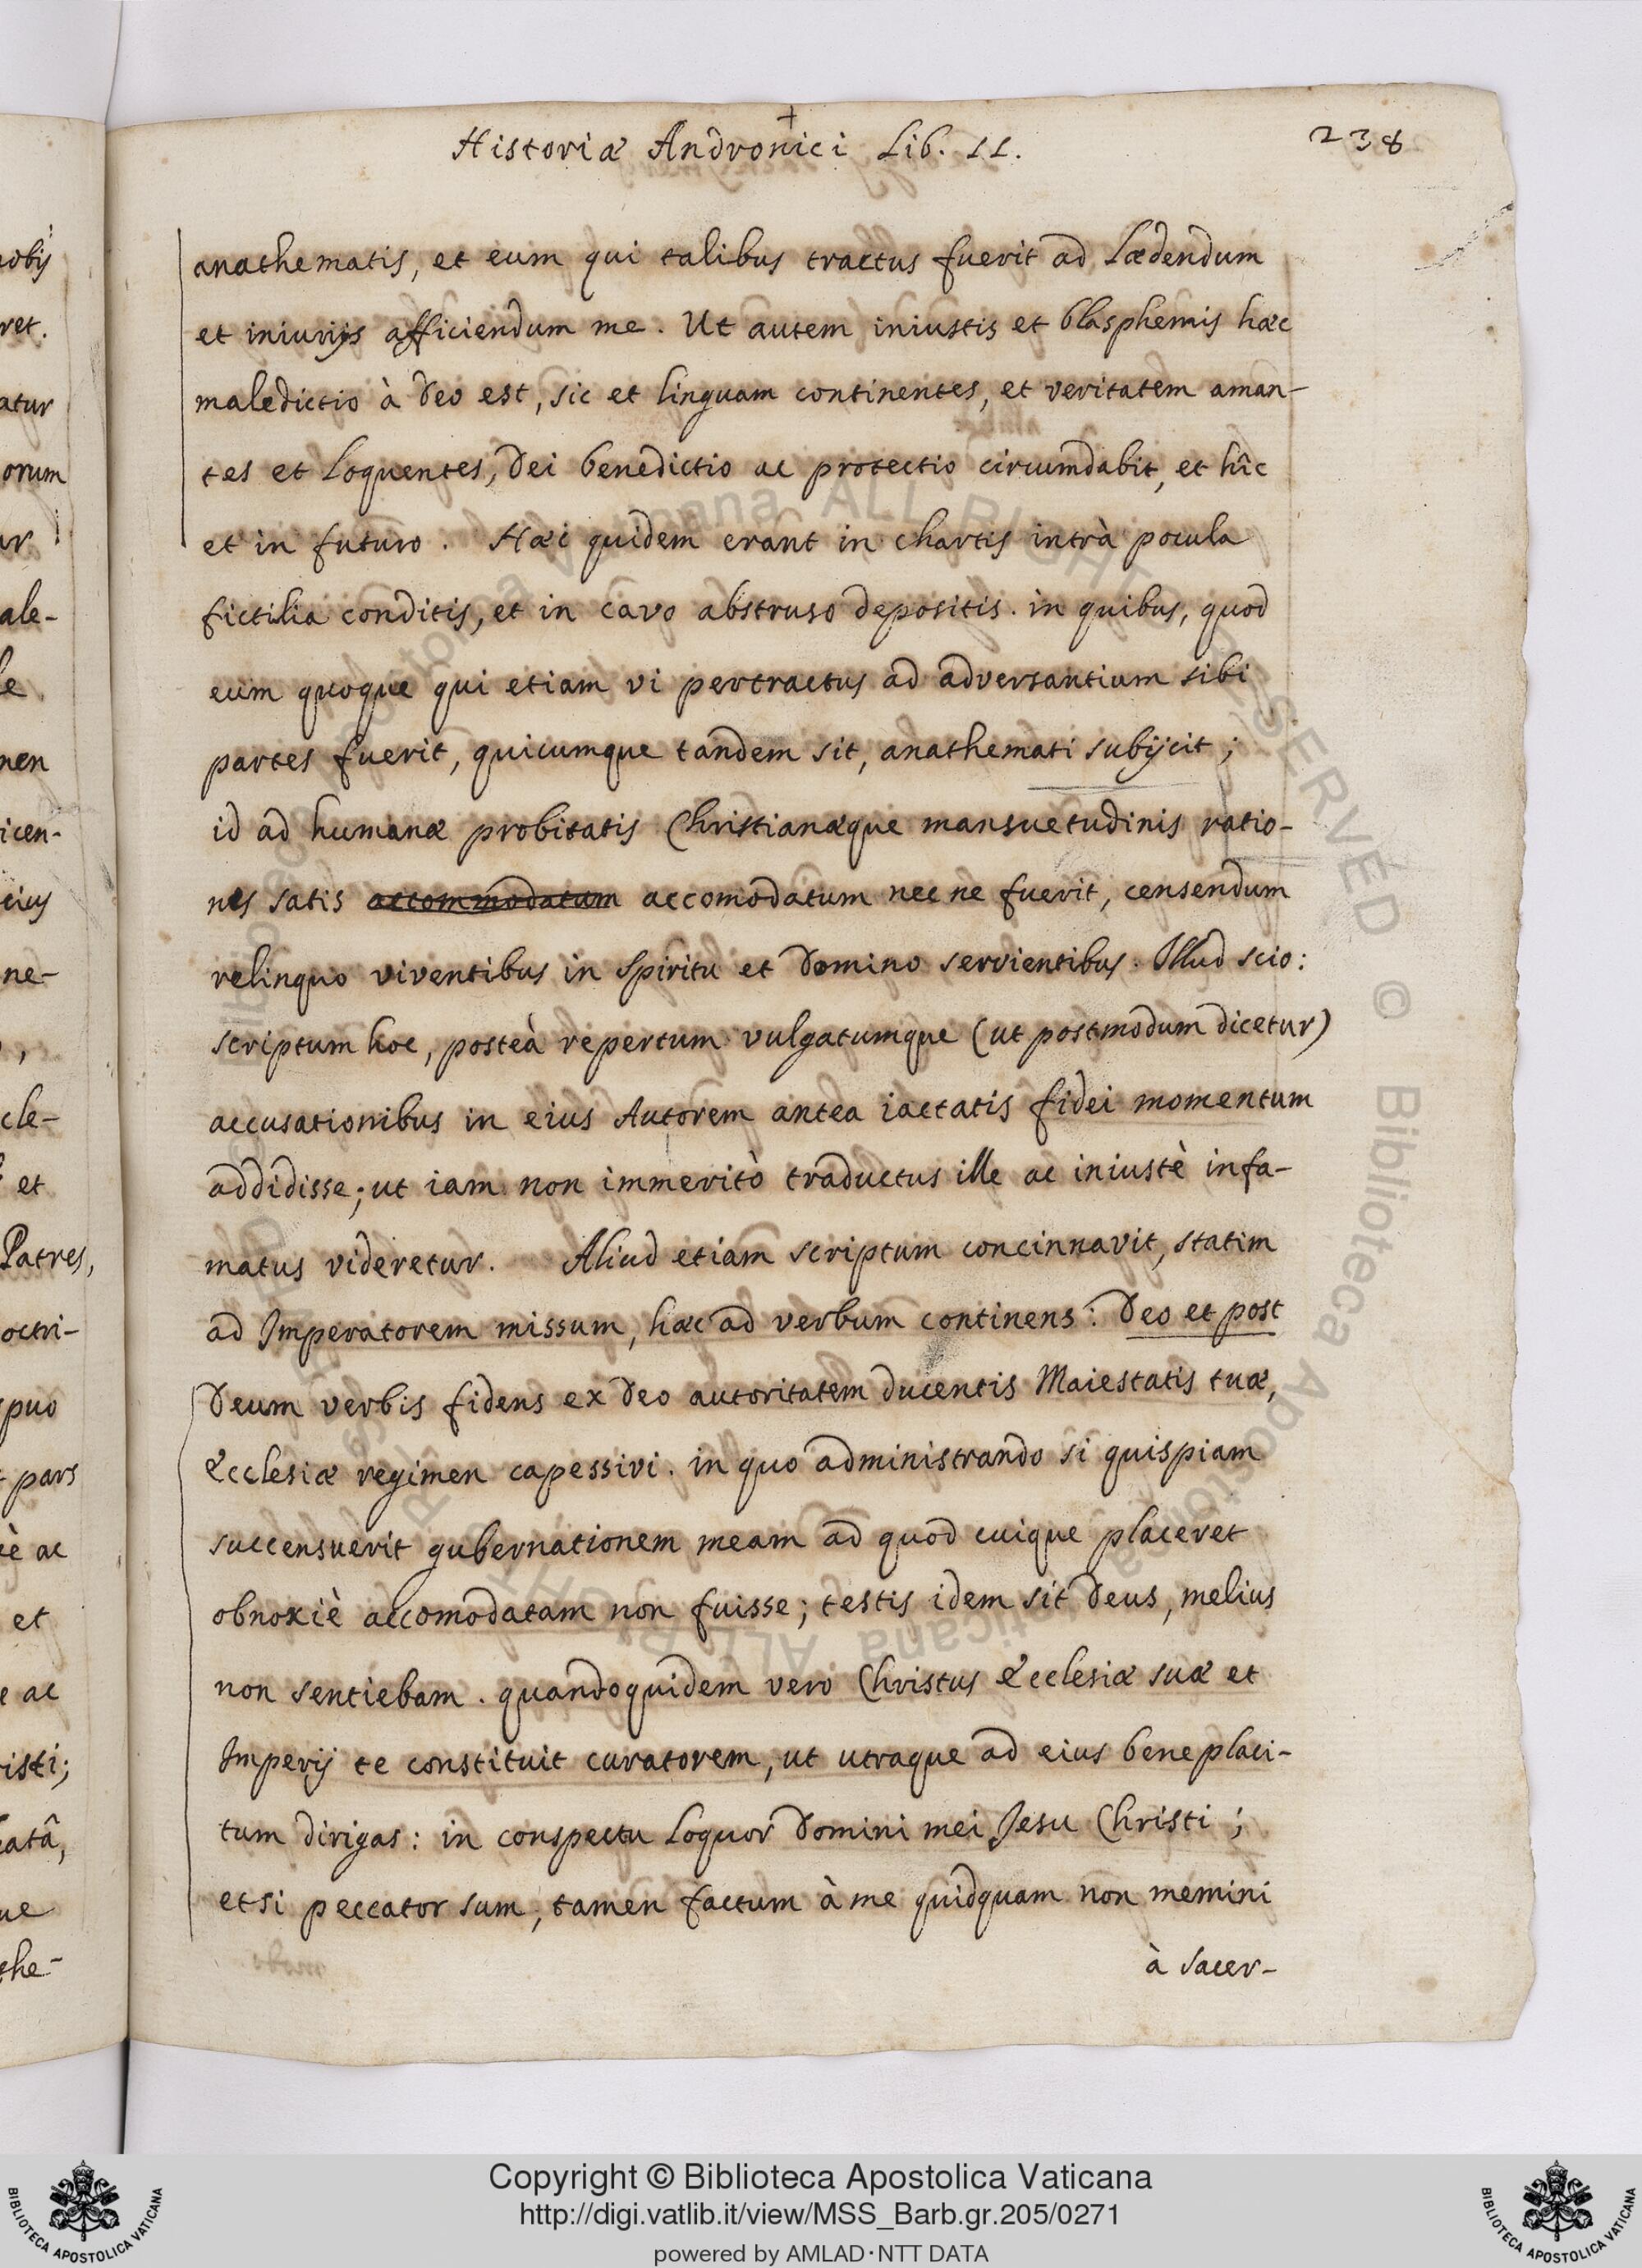 Historiæ Andronici Lib. II.
238
anathematis, et eum qui talibus tractus fuerit ad lædendum
et iniurijs afficiendum me. Ut autem iniustis et blasphemis hæc
maledictio à Deo est, sic et linguam continentes, et veritatem aman-
tes et loquentes, Dei benedictio ac protectio circumdabit, et hîc
et in futuro. Hæc quidem erant in chartis intrà pocula
fictilia conditis, et in cavo abstruso depositis. in quibus, quod
eum quoque qui etiam vi pertractus ad adversantium sibi
partes fuerit, quicumque tandem sit, anathemati subijcit;
id ad humanæ probitatis Christianæque mansuetudinis ratio-
nes satis accommodatum accomodatum nec ne fuerit, censendum
relinquo viventibus in Spiritu et Domino servientibus. Illud scio:
scriptum hoc, posteà repertum vulgatumque (ut postmodum dicetur)
accusationibus in eius Autorem antea iactatis fidei momentum
addidisse; ut iam non immeritò traductus ille ac iniustè infa-
matus videretur. Aliud etiam scriptum concinnavit, statim
ad Imperatorem missum, hæc ad verbum continens: Deo et post
Deum verbis fidens ex Deo autoritatem ducentis Maiestatis tuæ,
Ecclesiæ regimen capessivi. in quo administrando si quispiam
succensuerit gubernationem meam ad quod cuique placeret
obnoxiè accomodatam non fuisse; testis idem sit Deus, melius
non sentiebam. quandoquidem vero Christus Ecclesiæ suæ et
Imperij te constituit curatorem, ut utraque ad eius beneplaci-
tum dirigas: in conspectu loquor Domini mei Jesu Christi;
etsi peccator sum, tamen factum à me quidquam non memini
à sacer-
nobij
ret.
atur
orum
ur
ale-
le
nen
icen-
eius
ne-
,
cle-
et
Patres,
octri-
spuo
pars
è ac
et
e ac
risti;
catâ,
ue
the-
Biblioteca Apostolica Vaticana ALL RIGHTS RESERVED © Biblioteca Apostolica Vaticana ALL RIGHTS RESERVED
Copyright © Biblioteca Apostolica Vaticana
http://digi.vatlib.it/view/MSS_Barb.gr.205/0271
powered by AMLAD·NTT DATA
BIBLIOTECA APOSTOLICA VATICANA
BIBLIOTECA APOSTOLICA VATICANA